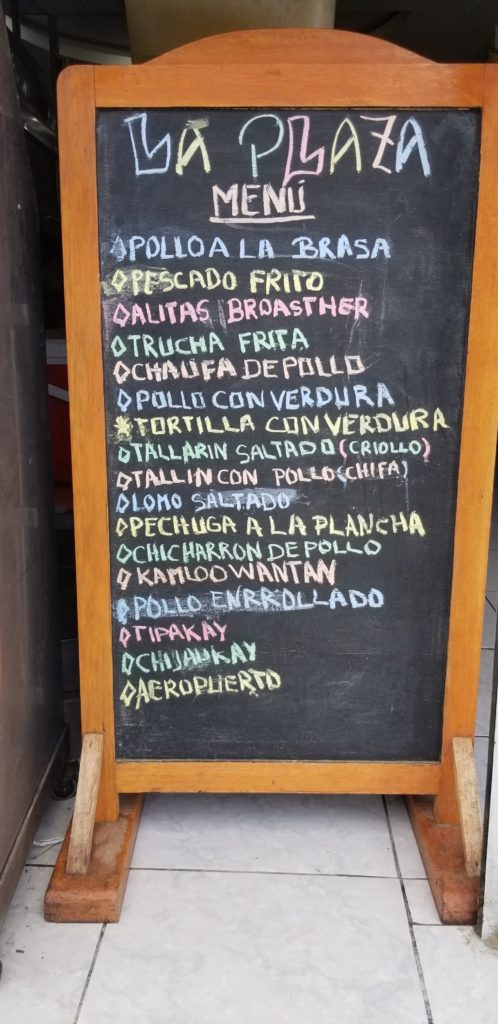 LA PLAZA
MENÚ
◊POLLO A LA BRASA
◊PESCADO FRITO
◊ALITAS BROASTHER
◊TRUCHA FRITA
◊CHAUFA DE POLLO
◊POLLO CON VERDURA
*TORTILLA CON VERDURA
◊TALLARIN SALTADO (CRIOLLO)
◊TALLIN CON POLLO (CHIFA)
◊LOMO SALTADO
◊PECHUGA A LA PLANCHA
◊CHICHARRON DE POLLO
◊KAMLOO WANTAN
◊POLLO ENRROLLADO
◊TIPAKAY
◊CHIJAUKAY
◊AEROPUERTO